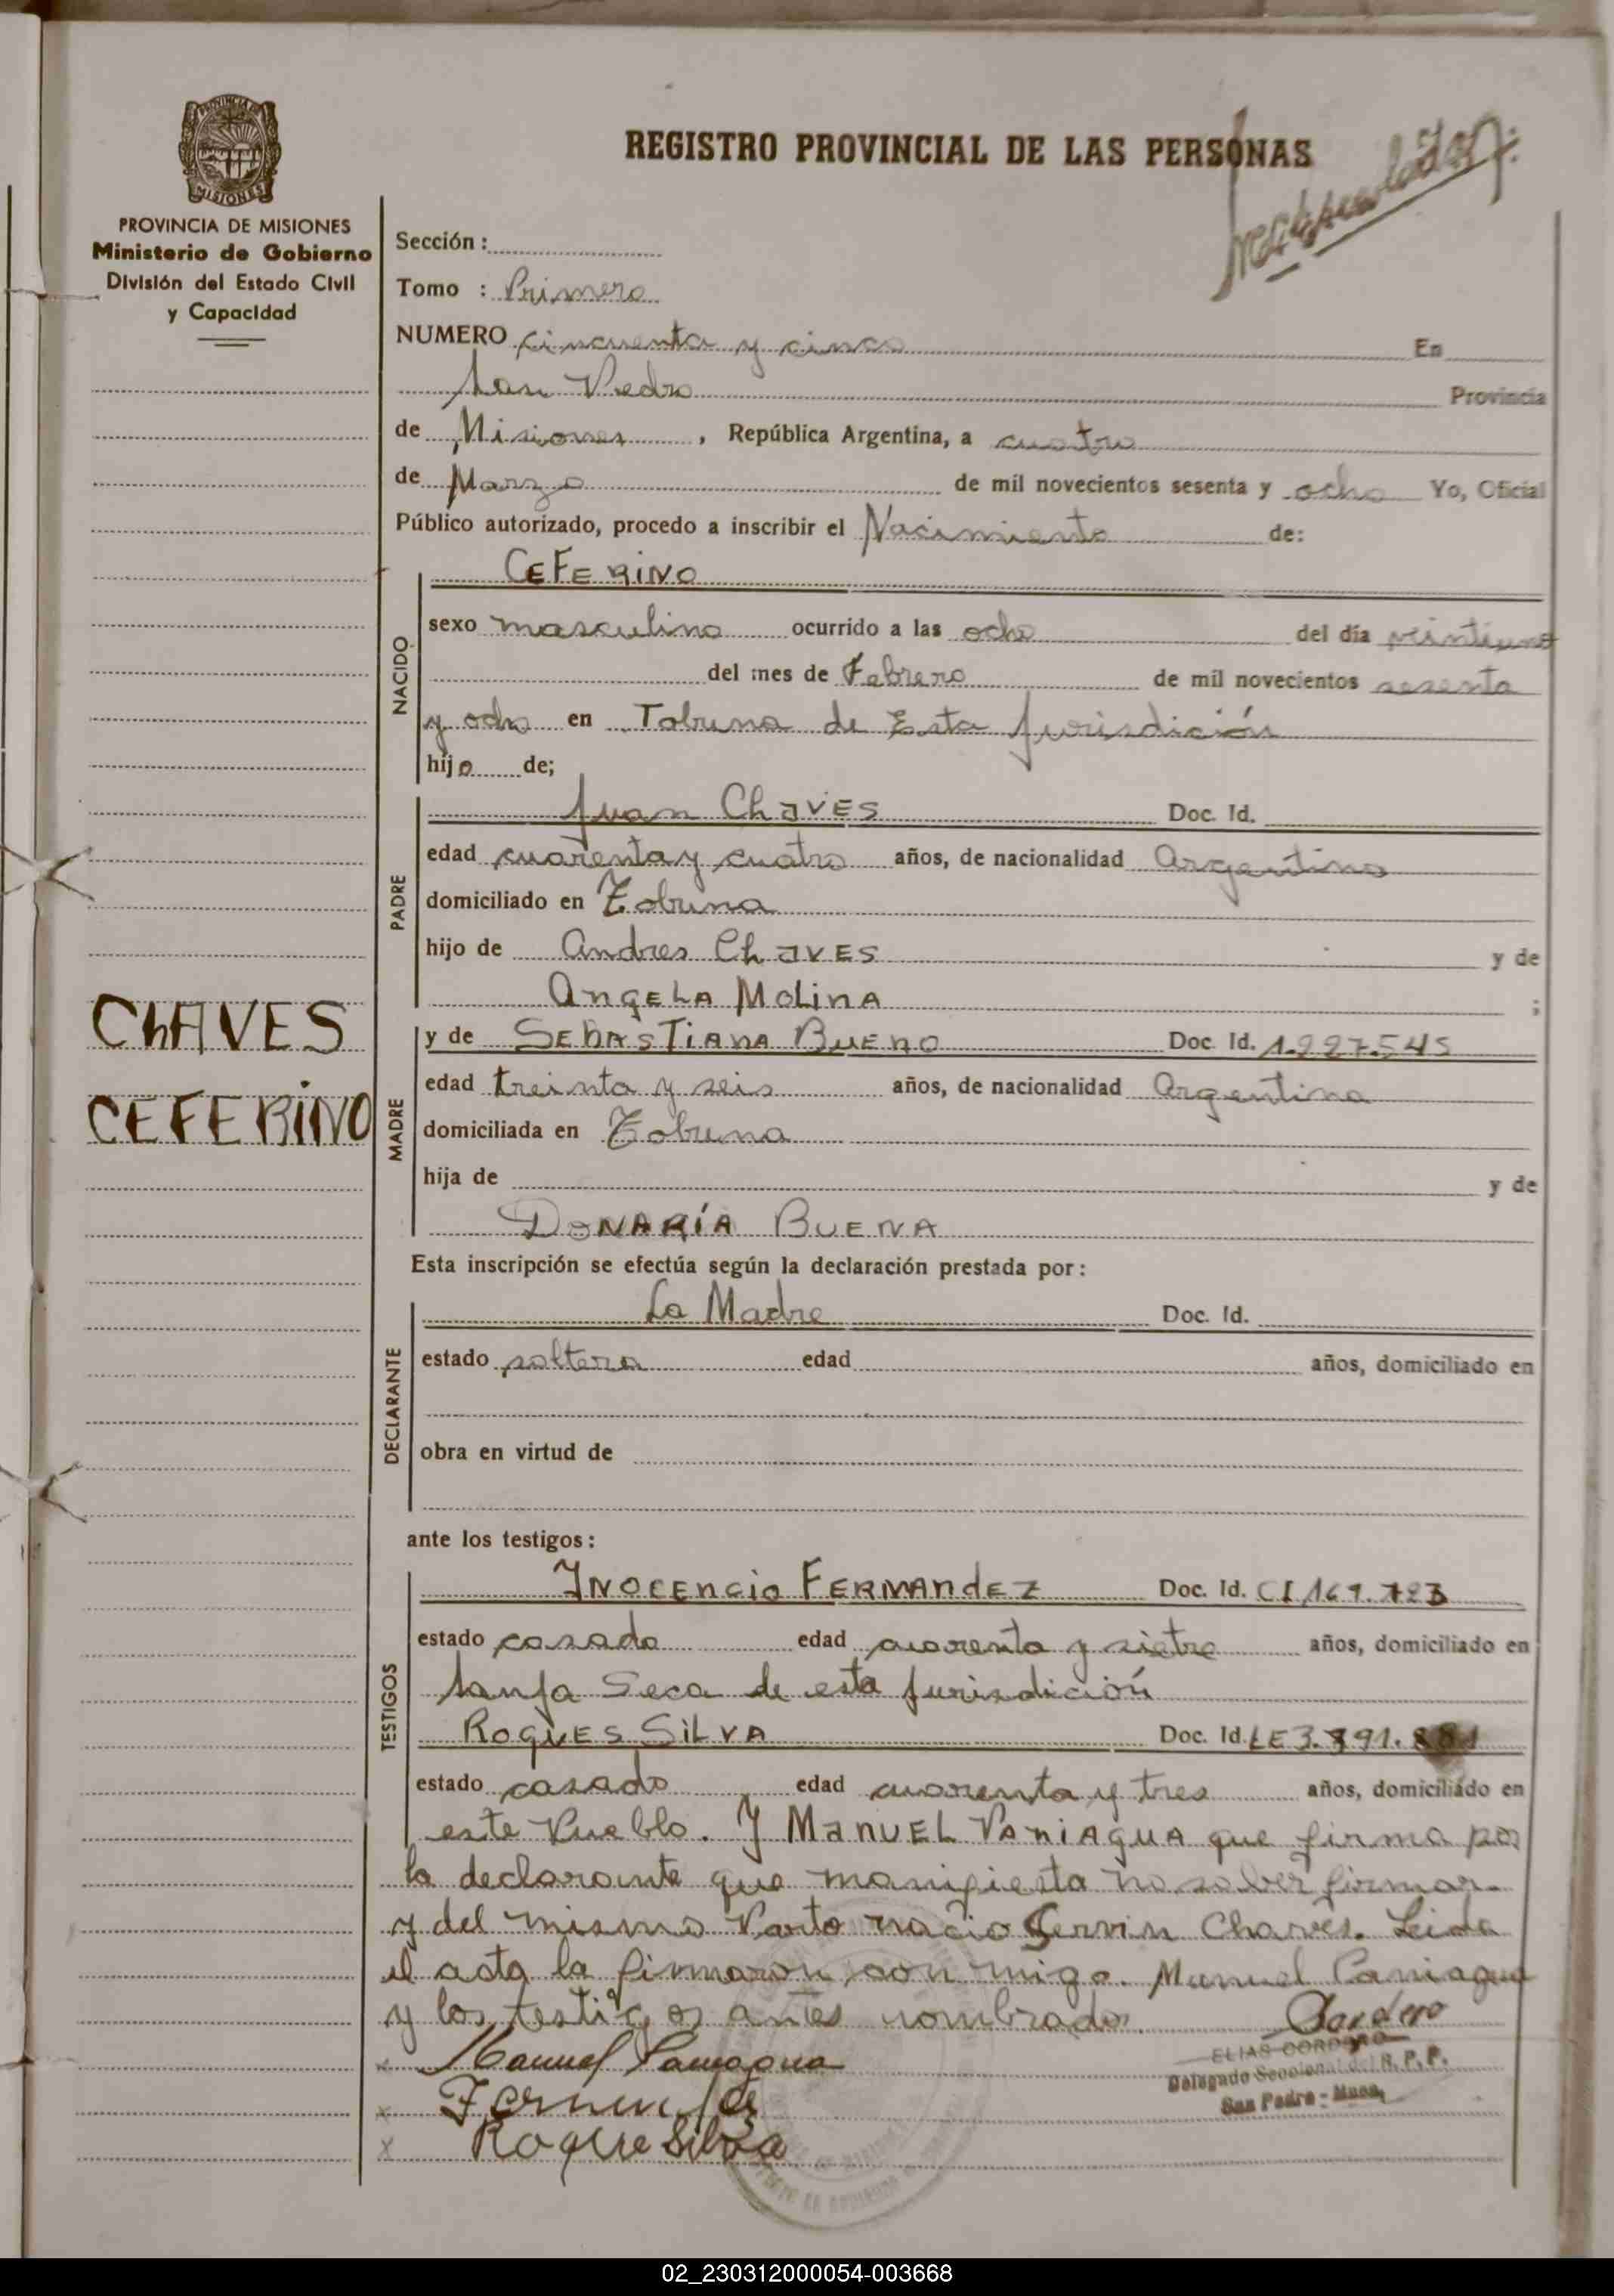 PROVINCIA DE
MISIONES
PROVINCIA DE MISIONES
Ministerio de Gobierno
División del Estado Civil
y Capacidad
REGISTRO PROVINCIAL DE LAS PERSONAS
Sección :
Tomo : Primero
NUMERO cincuenta y cinco En
San Pedro Provincia
de Misiones , República Argentina, a cuatro
de Marzo de mil novecientos sesenta y ocho Yo, Oficial
Público autorizado, procedo a inscribir el Nacimiento de:
CEFERINO
NACIDO
sexo masculino ocurrido a las ocho del día veintiuno
del mes de Febrero de mil novecientos sesenta
y ocho en Tobuna de Esta Jurisdición
hijo de;
PADRE
Juan ChAVES Doc. Id.
edad cuarenta y cuatro años, de nacionalidad Argentino
domiciliado en Tobuna
hijo de Andres ChAVES y de
ANGELA MOLINA ;
CHAVES
CEFERINO
MADRE
y de SEBASTIANA BUENO Doc. Id. 1.227.545
edad treinta y seis años, de nacionalidad Argentina
domiciliada en Tobuna
hija de y de
DONARÍA BUENA
Esta inscripción se efectúa según la declaración prestada por:
DECLARANTE
La Madre Doc. Id.
estado soltera edad años, domiciliado en
obra en virtud de
ante los testigos:
TESTIGOS
INOCENCIO FERNANDEZ Doc. Id. CI 169.723
estado casado edad cuarenta y siete años, domiciliado en
Sanja Seca de esta Jurisdición
ROQUES SILVA Doc. Id. LE 3.891.881
estado casado edad cuarenta y tres años, domiciliado en
este Pueblo. Y MANUEL PANIAGUA que firma por
la declarante que manifiesta no saber firmar.
y del mismo Parto nacio Servin Chaves. Leida
el acta la firmaron con migo. Manuel Paniagua
y los testigos antes nombrados.
Cordero
ELIAS CORDERO
Delegado Seccional del R. P. P.
San Pedro - Mnes.
x Manuel Paniagua
x Fernandez
x Roque Silva
02_230312000054-003668